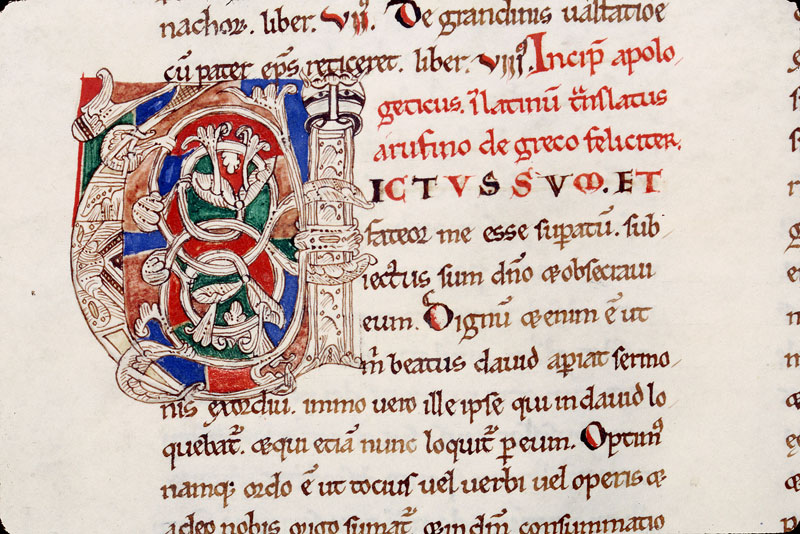 nachoꝝ. liber. VIIᵒ. De grandinis uastatioe
cũ pater ep̃s reticeret. liber. VIIIᵒ. Incip̃ apolo
geticus. ĩ latinũ t̃nslatus
a rufino de greco feliciter.
ICTVS SVM. ET
fateor me esse sup̱atũ. sub
iectus sum dño ⁊ obsecraui
eum. Dignũ ⁊ enim ẽ ut
m̃ beatus dauid ap̱iat sermo
nis exordiũ. immo uero ille ipse qui in dauid lo
quebat᷑. ⁊ qui etiã nunc loquit᷑ p̱ eum. Optimꝰ
namq; ordo ẽ ut tocius uel uerbi uel operis ⁊
a deo nobis origo sumat᷑. ⁊ in dm̃ consummatio